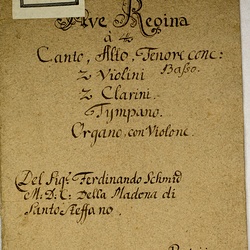 Ave Regina
à 4
Canto, Alto, Tenore conc:
Basso.
2 Violini
2 Clarini.
Tympano.
Organo, con Violone.
Del Sigre Ferdinando Schmid
M: D: C: Della Madona di
Santo Steffano.